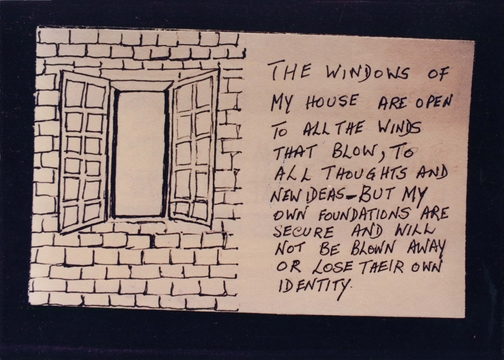 THE WINDOWS OF
MY HOUSE ARE OPEN
TO ALL THE WINDS
THAT BLOW, TO
ALL THOUGHTS AND
NEW IDEAS-BUT MY
OWN FOUNDATIONS ARE
SECURE AND WILL
NOT BE BLOWN AWAY
OR LOSE THEIR OWN
IDENTITY.